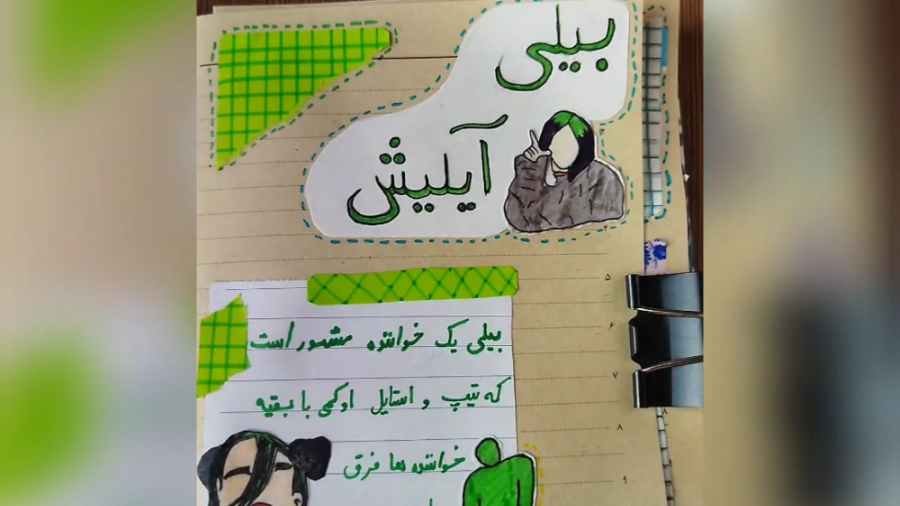 بیلی
آیلیش
بیلی یک خواننده مشهور است
که تیپ و استایل او کمی با بقیه
خواننده ها فرق
۵
۶
۷
۸
۹